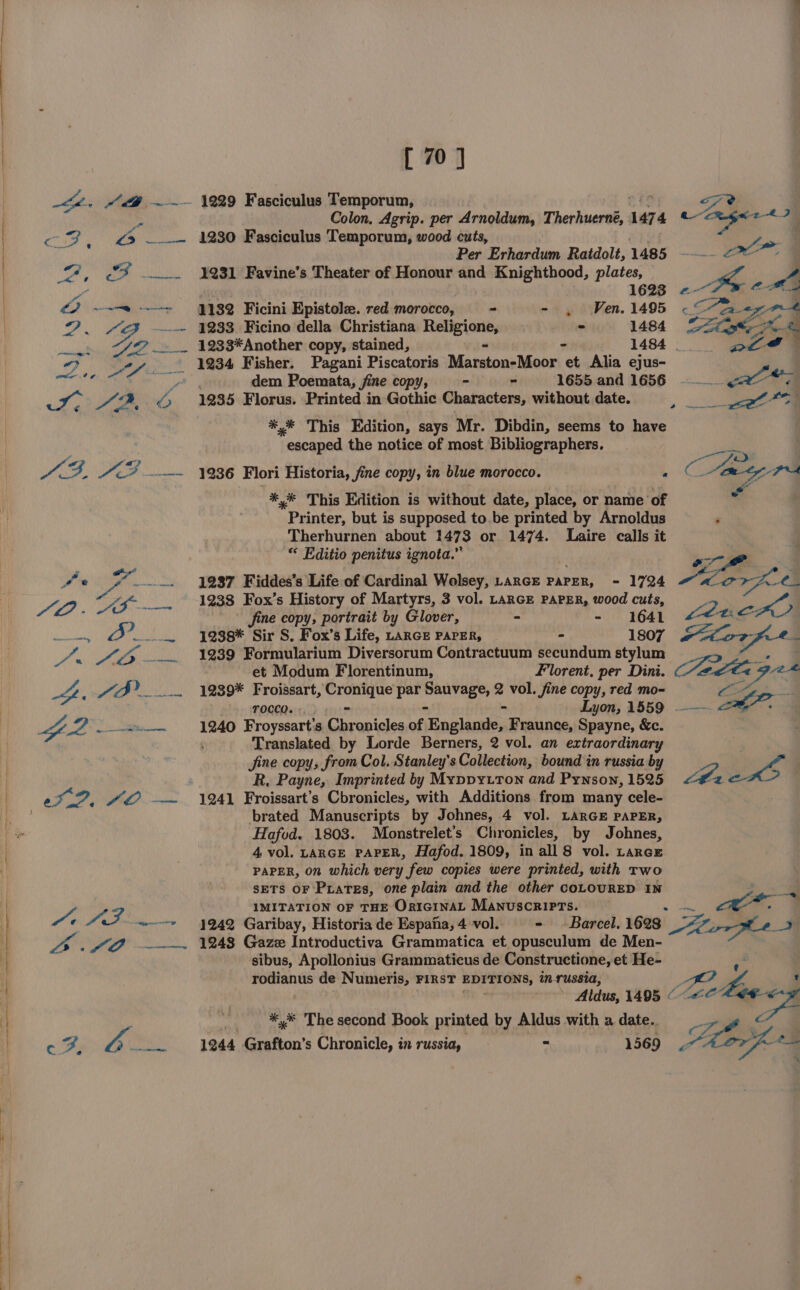 [ 70 ]
1229 Fasciculus Temporum,
Colon. Agrip. per Arnoldum, Therhuerné, 1474
3, 6 —— 1230 Fasciculus Temporum, wood cuts,
Per Erhardum Ratdolt, 1485
2, 3 —— 1231 Favine's Theater of Honour and Knighthood, plates,
1623
6 —— 1132 Ficini Epistolæ. red morocco, - - . Ven. 1495
1233 Ficino della Christiana Religione, - 1484
1233*Another copy, stained, - - 1484
1234 Fisher. Pagani Piscatoris Marston-Moor et Alia ejus-
dem Poemata, fine copy, - - 1655 and 1656
1235 Florus. Printed in Gothic Characters, without date.
*** This Edition, says Mr. Dibdin, seems to have
escaped the notice of most Bibliographers.
13. 13 —— 1236 Flori Historia, fine copy, in blue morocco.
*** This Edition is without date, place, or name of
Printer, but is supposed to be printed by Arnoldus
Therhurnen about 1473 or 1474. Laire calls it
“ Editio penitus ignota.”
1237 Fiddes's Life of Cardinal Wolsey, LARGE PAPER, - 1724 Thorpe
10. 15 —— 1238 Fox's History of Martyrs, 3 vol. LARGE PAPER, wood cuts,
fine copy, portrait by Glover, - - 1641
1238* Sir S. Fox's Life, LARGE PAPER, - 1807 Thorpe
1. 16 —— 1239 Formularium Diversorum Contractuum secundum stylum
et Modum Florentinum, Florent. per Dini.
1239* Froissart, Cronique par Sauvage, 2 vol. fine copy, red mo-
rocco. - - - Lyon, 1559
42 —— 1240 Froyssart's Chronicles of Englande, Fraunce, Spayne, &c.
Translated by Lorde Berners, 2 vol. an extraordinary
fine copy, from Col. Stanley's Collection, bound in russia by
R. Payne, Imprinted by MYDDYLTON and PYNSON, 1525
52. 10 — 1241 Froissart's Chronicles, with Additions from many cele-
brated Manuscripts by Johnes, 4 vol. LARGE PAPER,
Hafod. 1803. Monstrelet's Chronicles, by Johnes,
4 vol. LARGE PAPER, Hafod. 1809, in all 8 vol. LARGE
PAPER, on which very few copies were printed, with TWO
SETS OF PLATES, one plain and the other COLOURED IN
IMITATION OF THE ORIGINAL MANUSCRIPTS.
1. 13 —— 1242 Garibay, Historia de España, 4 vol. - Barcel. 1628
1243 Gazæ Introductiva Grammatica et opusculum de Men- Thorpe
sibus, Apollonius Grammaticus de Constructione, et He-
rodianus de Numeris, FIRST EDITIONS, in russia,
Aldus, 1495
*** The second Book printed by Aldus with a date.
3, 6 —— 1244 Grafton's Chronicle, in russia, - 1569 Thorpe